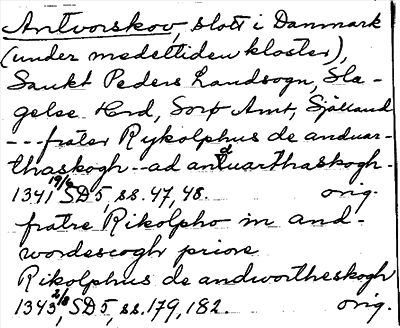 Antvorskov, slott i Danmark
(under medeltiden kloster),
Sankt Peders Landsogn, Sla-
gelse Hrd, Sorø Amt, Sjælland
--- frater Rykolphus de anduar-
thaskogh -- ad anduarthaskogh.
1341 19/8, SD5, ss. 47, 48. orig.
fratre Rikolpho in and-
wordescogh priore
Rikolphus de andwortheskogh
1343 2/8, SD5, ss. 179, 182. orig.